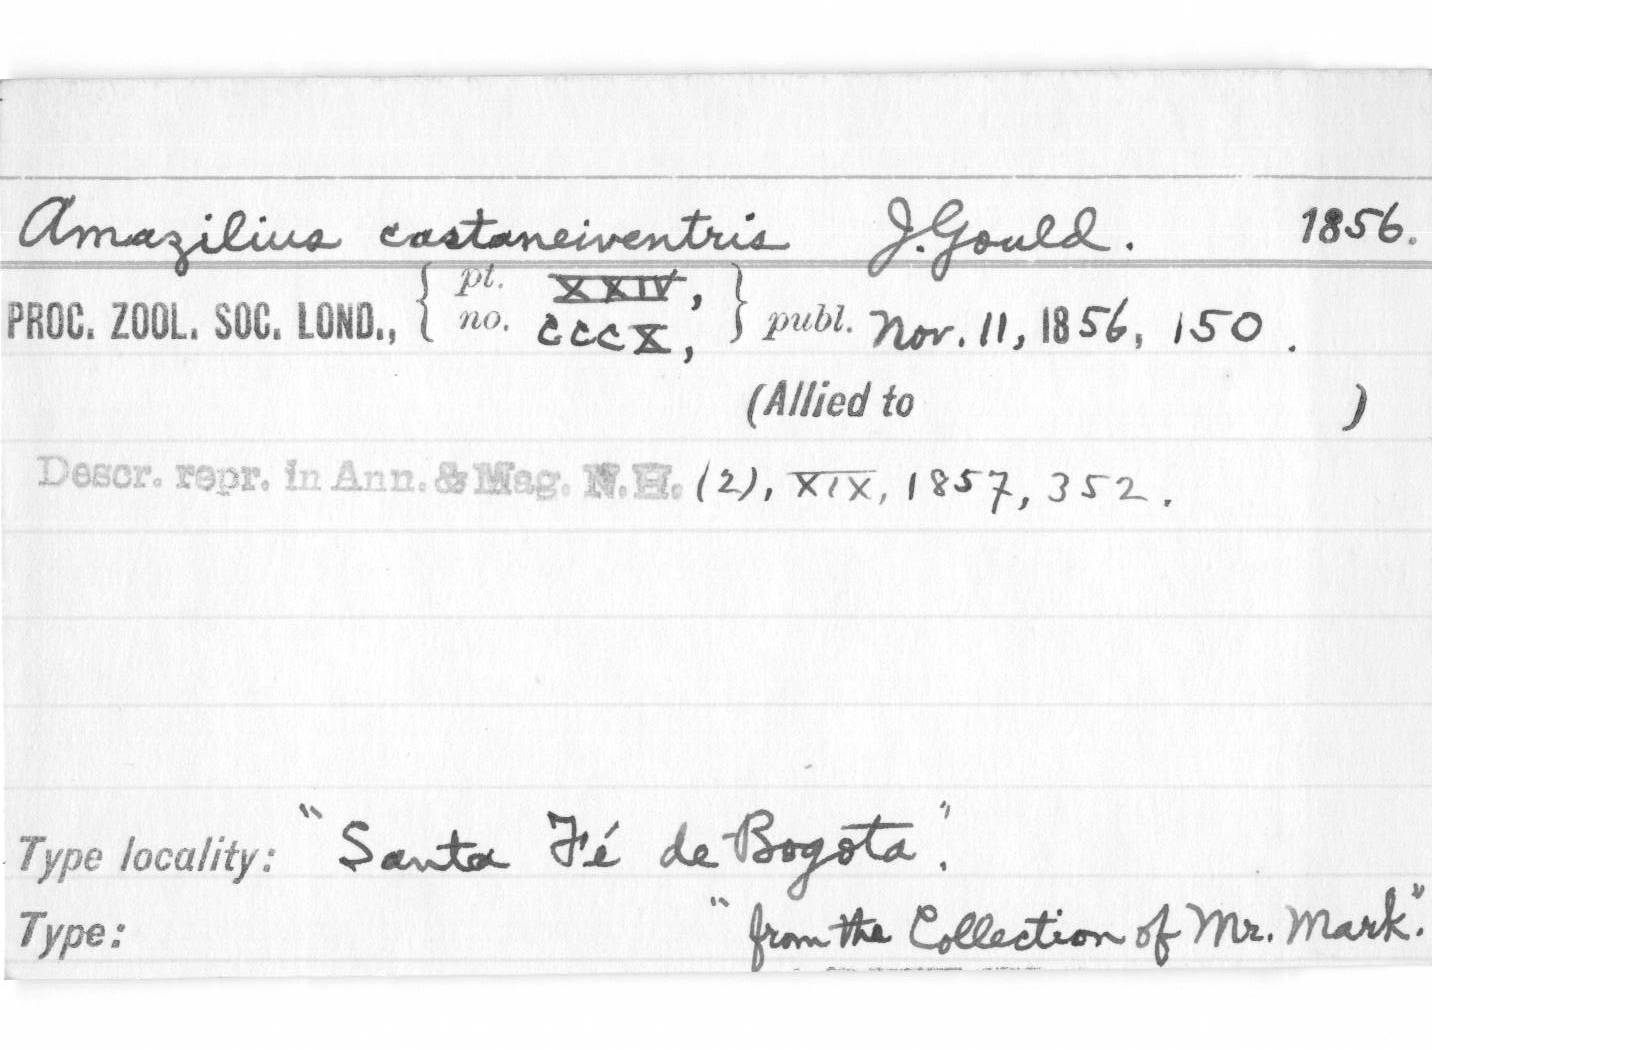 Amazilius castaneiventris J. Gould. 1856.
PROC. ZOOL. SOC. LOND., { pt. XXIV, no. CCCX, } publ. Nov. 11, 1856, 150.
(Allied to )
Descr. repr. in Ann. & Mag. N.H. (2), XIX, 1857, 352.
Type locality: "Santa Fé de Bogota".
Type: "from the Collection of Mr. Mark".